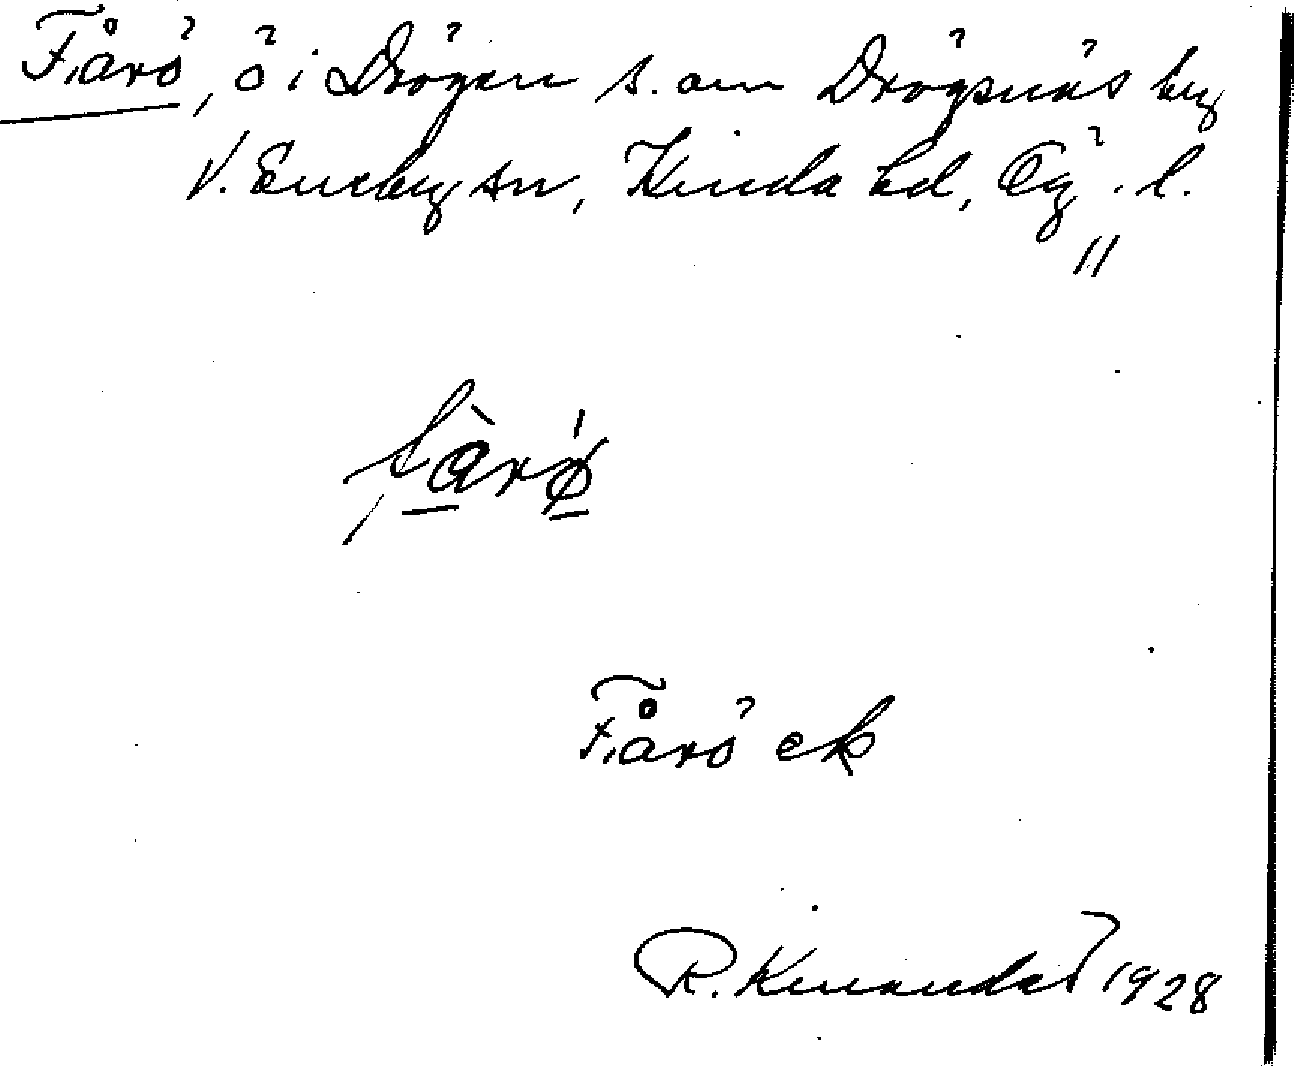 Fårö, ö i Drögen s. om Drögsnäs by
V. Eneby sn, Kinda hd, Ög. l.
fàrø̀
Fårö ek
R. Kinander 1928